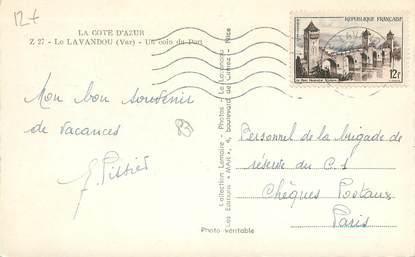 12+
LA COTE D'AZUR
Z 27 - Le LAVANDOU (Var) - Un coin du Port
REPUBLIQUE FRANÇAISE
12F
Mon bon souvenir
de vacances
83
Collection Lemaire - Photos - Le Lavandou
Les Editions « MAR », 4, boulevard de Cimiez - Nice
Personnel de la brigade de
réserve du C. 1
Chèques Postaux
Paris
Photo véritable